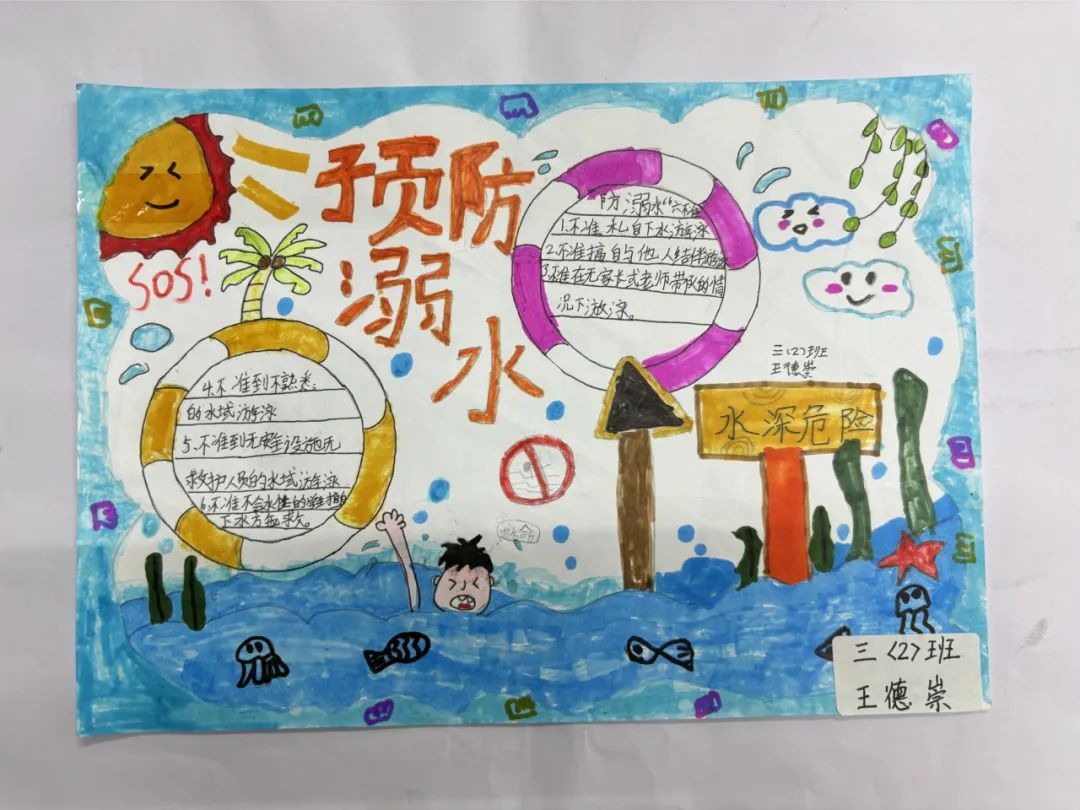 预防
溺
水
SOS!
防溺水“六不准
1.不准私自下水游泳
2.不准擅自与他人结伴游泳
3.不准在无家长或老师带队的情
况下游泳。
三(2)班
王德崇
水深危险
4.不准到不熟悉
的水域游泳
5.不准到无安全设施无
救护人员的水域游泳
6.不准不会水性的学生擅自
下水方
救命
三〈2〉班
王德崇